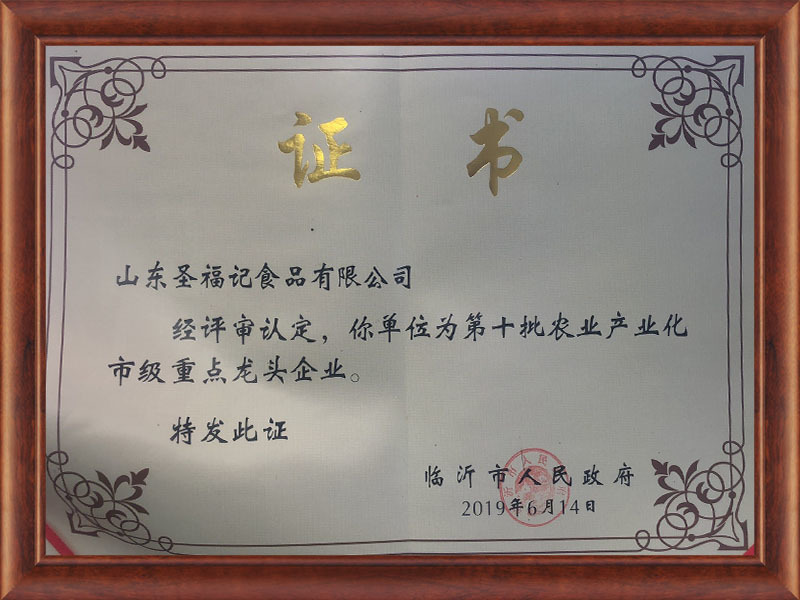 证 书
山东圣福记食品有限公司
经评审认定，你单位为第十批农业产业化
市级重点龙头企业。
特发此证
临沂市人民政府
2019年6月14日